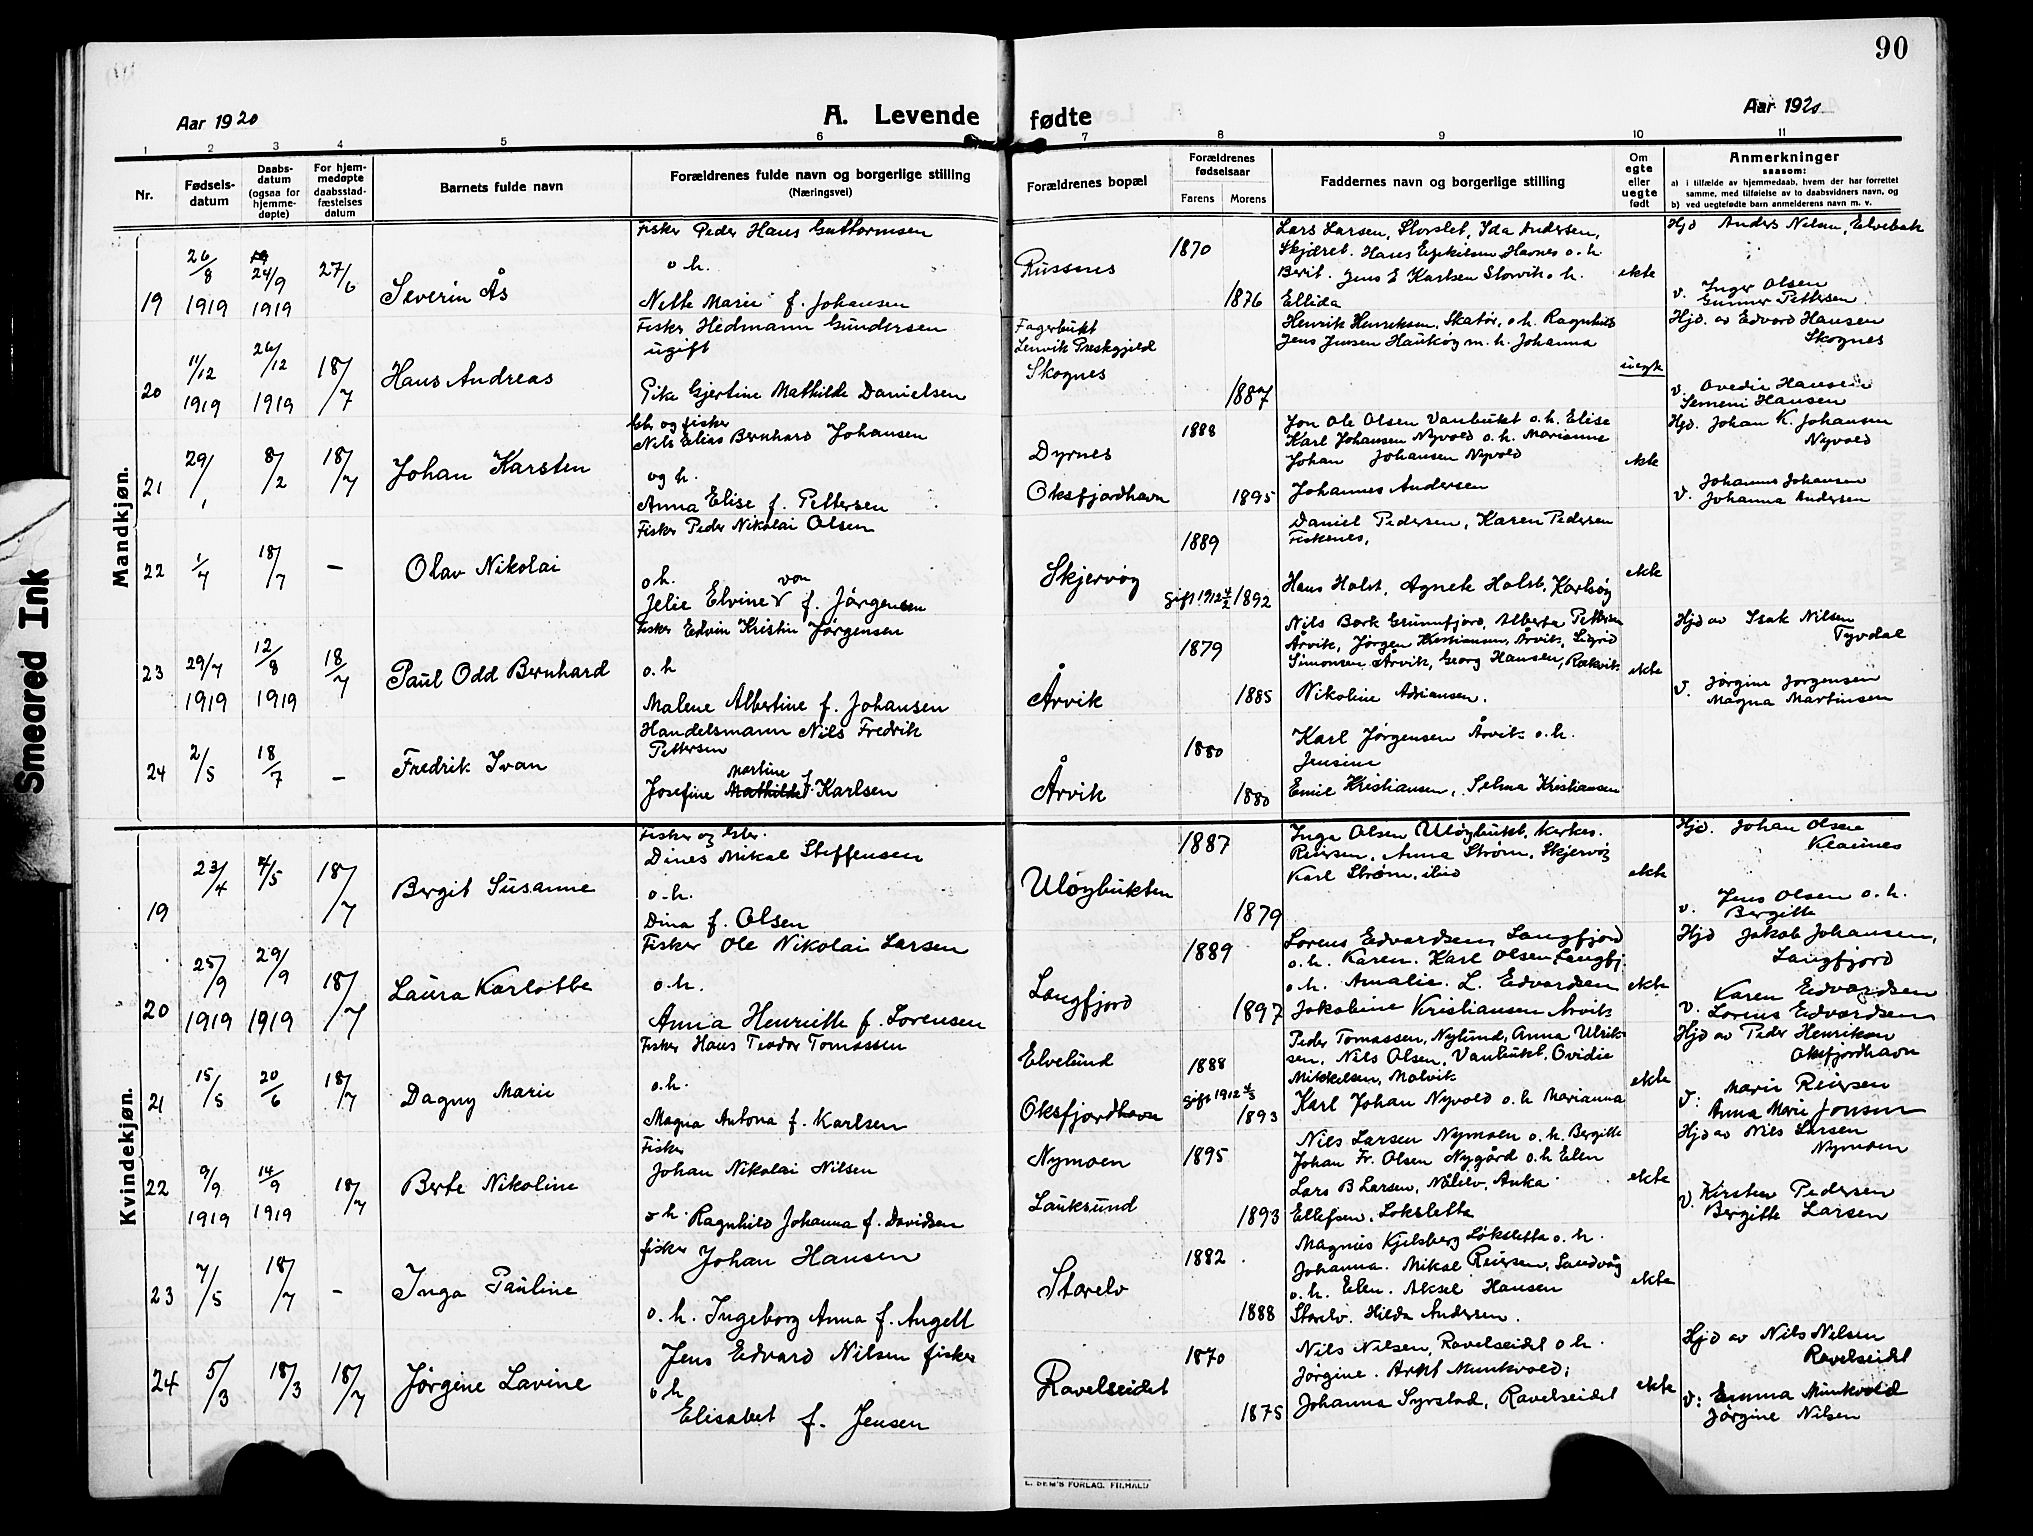 90
Aar 1920
A. Levende fødte
Aar 1920
1 2 3 4 5 6 7 8 9 10 11
Nr.
Fødsels-
datum
Daabs-
datum
(ogsaa for
hjemme-
døpte)
For hjem-
medøpte
daabsstad-
fæstelses
datum
Barnets fulde navn
Forældrenes fulde navn og borgerlige stilling
(Næringsvei)
Forældrenes bopæl
Forældrenes
fødselsaar
Farens Morens
Faddernes navn og borgerlige stilling
Om
egte
eller
uegte
født
Anmerkninger
saasom:
a) i tilfælde av hjemmedaab, hvem der har forrettet
samme, med tilføielse av to daabsvidners navn, og
b) ved uegtefødte barn anmelderens navn m. v.
Mandkjøn.
19 26/8 1919 24/9 1919 27/6 Severin Ås
Fisker Peder Hans Guttormsen
o h.
Nette Marie f. Johansen
Russenes
1870
1876
Lars Larsen, Storslet, Ida Andersen,
Skjæret. Hans Ezekielsen Havnes o. h.
Berit. Jens E Karlsen Storvik o. h.
Ellida
ekte
Hjd Anders Nelsen, Elvebak
v. Inger Olsen
Gunner Pettersen
20 11/12 1919 26/12 1919 18/7 Hans Andreas
Fisker Hedmann Gundersen
ugift
Pike Gjertine Mathilde Danielsen
Fagerbukt
Lenvik Preskgjeld
Skognes
1887
Henrik Henriksen, Skatør, o.h. Ragnhild
Jens Jensen Haukøy m. h. Johanna
uegte
Hjd. av Edvard Hansen
Skognes
v. Ovedie Hansen
Semeni Hansen
21 29/1 8/2 18/7 Johan Karsten
Gbr og fisker
Nils Elias Bernhard Johansen
og h.
Anna Elise f. Pettersen
Dyrnes
Oksfjordhavn
1888
1895
Jon Ole Olsen Vanbukt o.h. Elise
Karl Johansen Nyvold o.h. Marianne
Johan Johansen Nyvold
Johannes Andersen
ekte
Hjd. Johan K. Johansen
Nyvold
v. Johannes Johansen
Johanna Andersen
22 1/7 18/7 - Olav Nikolai
Fisker Peder Nikolai Olsen
o h.
von
Jelie Elvine f. Jørgensen
Skjervøy
1889
Gift 1912 4/2 1892
Daniel Pedersen, Karen Pedersen
Fiskenes,
Hans Holst, Agnete Holst, Karlsøy
ekte
23 29/7 1919 12/8 1919 18/7 Paul Odd Bernhard
Fisker Edvin Kristin Jørgensen
o. h
Malene Albertine f. Johansen
Årvik
1879
1885
Nils Bork Grunnfjord, Alberta Pettersen
Årvik, Jørgen Kristiansen, Årvik, Sigrid
Simonsen Årvik, Georg Hansen, Rakvik
Nikoline Adriansen.
ekte
Hjd av Isak Nilsen
Tyvdal
v. Jørgine Jørgensen
Magna Martinsen
24 2/5 18/7 - Fredrik Ivan
Handelsmann Nils Fredrik
Pettersen
Martine
Josefine Mathilde f Karlsen
Årvik
1880
1880
Karl Jørgensen Årvik o.h.
Jensine
Emil Kristiansen, Selma Kristiansen
Kvindekjøn.
19 23/4 4/5 18/7 Bergit Susanne
Fisker og Gbr.
Dines Mikal Steffensen
o. h.
Dina f. Olsen
Uløybukten
1887
1879
Inga Olsen Uløybukt, Kerkes.
Reiersen, Anna Strøm, Skjervøy
Karl Strøm, ibid
ekte
Hjd. Johan Olsen
Klaunes
v. Jens Olsen o. h.
Bergitte
20 25/9 1919 29/9 1919 18/7 Laura Karlotte
Fisker Ole Nikolai Larsen
o. h.
Anna Henriette f. Lorensen
Langfjord
1889
1897
Lorens Edvardsen, Langfjord
o. h. Karen. Karl Olsen, Langfj.
o. h. Amalie. L. Edvardsen
Jakobine Kristiansen Arvik
ekte
Hjd Jakob Johansen,
Langfjord
v. Karen Edvardsen
Lorens Edvardsen
21 15/5 20/6 18/7 Dagny Marie
Fisker Hans Teodor Tomassen
o. h.
Magna Antona f. Karlsen
Elvelund
Oksfjordhavn
1888
Gift 1912 4/5
1893
Peder Tomassen, Nylund, Anna Ulrik-
sen, Nils Olsen, Vanbukt, Ovidie
Mikkelsen, Malvik
Karl Johan Nyvold o. h Marianna
ekte
Hjd av Peder Henriksen
Oksfjordhavn
v: Marie Reiersen
Anna Marie Jonsen
22 9/9 1919 14/9 1919 18/7 Berte Nikoline
Fisker
Johan Nikolai Nilsen
o h. Ragnhild Johanna f. Davidsen
Nymoen
Lauksund
1895
1893
Nils Larsen Nymoen o. h. Bergitte
Johan Fr. Olsen Nygård o. h Elen
Lars B Larsen, Nilelv, Anka
Ellefsen, Loksletta
ekte
Hjd av Nils Larsen
Nymoen
v. Kirsten Pedersen
Bergitte Larsen
23 7/5 18/7 - Inga Pauline
fisker Johan Hansen
o. h. Ingeborg Anna f. Angell
Storelv
1882
1888
Magnus Kjelsberg Løksletta o. h.
Johanna. Mikal Reiersen, Sandvåg
o. h. Elen. Aksel Hansen
Storelv. Hilda Andersen.
ekte
24 5/3 18/3 18/7 Jørgine Lavine
Jens Edvard Nilsen fisker
o h
Elisabet f. Jensen
Ravelseidet
1870
1875
Nils Nilsen, Ravelseidet o h.
Jørgine. Arkt Munkvold;
Johanna Syrstad, Ravelseidet
ekte
Hjd av Nils Nelsen
Ravelseidet
v: Emma Munkvold
Jørgine Nilsen
E. SEM'S FORLAG, FR.HALD
Smeared Ink